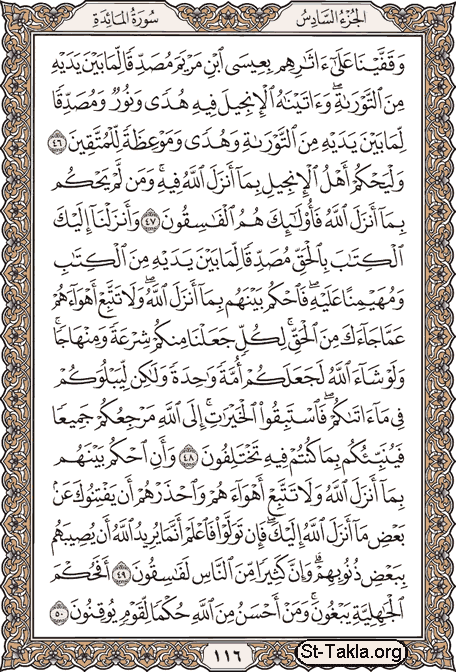 سُورَةُ المَائِدَةِ
الجُزْءُ السَّادِسُ
وَقَفَّيْنَا عَلَىٰٓ ءَاثَٰرِهِم بِعِيسَى ٱبْنِ مَرْيَمَ مُصَدِّقًا لِّمَا بَيْنَ يَدَيْهِ
مِنَ ٱلتَّوْرَىٰةِۖ وَءَاتَيْنَٰهُ ٱلْإِنجِيلَ فِيهِ هُدًى وَنُورٌ وَمُصَدِّقًا
لِّمَا بَيْنَ يَدَيْهِ مِنَ ٱلتَّوْرَىٰةِ وَهُدًى وَمَوْعِظَةً لِّلْمُتَّقِينَ ٤٦
وَلْيَحْكُمْ أَهْلُ ٱلْإِنجِيلِ بِمَآ أَنزَلَ ٱللَّهُ فِيهِۚ وَمَن لَّمْ يَحْكُم
بِمَآ أَنزَلَ ٱللَّهُ فَأُو۟لَٰٓئِكَ هُمُ ٱلْفَٰسِقُونَ ٤٧ وَأَنزَلْنَآ إِلَيْكَ
ٱلْكِتَٰبَ بِٱلْحَقِّ مُصَدِّقًا لِّمَا بَيْنَ يَدَيْهِ مِنَ ٱلْكِتَٰبِ
وَمُهَيْمِنًا عَلَيْهِۖ فَٱحْكُم بَيْنَهُم بِمَآ أَنزَلَ ٱللَّهُۖ وَلَا تَتَّبِعْ أَهْوَآءَهُمْ
عَمَّا جَآءَكَ مِنَ ٱلْحَقِّۚ لِكُلٍّ جَعَلْنَا مِنكُمْ شِرْعَةً وَمِنْهَاجًاۚ
وَلَوْ شَآءَ ٱللَّهُ لَجَعَلَكُمْ أُمَّةً وَٰحِدَةً وَلَٰكِن لِّيَبْلُوَكُمْ
فِى مَآ ءَاتَىٰكُمْۖ فَٱسْتَبِقُوا۟ ٱلْخَيْرَٰتِۚ إِلَى ٱللَّهِ مَرْجِعُكُمْ جَمِيعًا
فَيُنَبِّئُكُم بِمَا كُنتُمْ فِيهِ تَخْتَلِفُونَ ٤٨ وَأَنِ ٱحْكُم بَيْنَهُم
بِمَآ أَنزَلَ ٱللَّهُ وَلَا تَتَّبِعْ أَهْوَآءَهُمْ وَٱحْذَرْهُمْ أَن يَفْتِنُوكَ عَنۢ
بَعْضِ مَآ أَنزَلَ ٱللَّهُ إِلَيْكَۖ فَإِن تَوَلَّوْا۟ فَٱعْلَمْ أَنَّمَا يُرِيدُ ٱللَّهُ أَن يُصِيبَهُم
بِبَعْضِ ذُنُوبِهِمْۗ وَإِنَّ كَثِيرًا مِّنَ ٱلنَّاسِ لَفَٰسِقُونَ ٤٩ أَفَحُكْمَ
ٱلْجَٰهِلِيَّةِ يَبْغُونَۚ وَمَنْ أَحْسَنُ مِنَ ٱللَّهِ حُكْمًا لِّقَوْمٍ يُوقِنُونَ ٥٠
١١٦
St-Takla.org